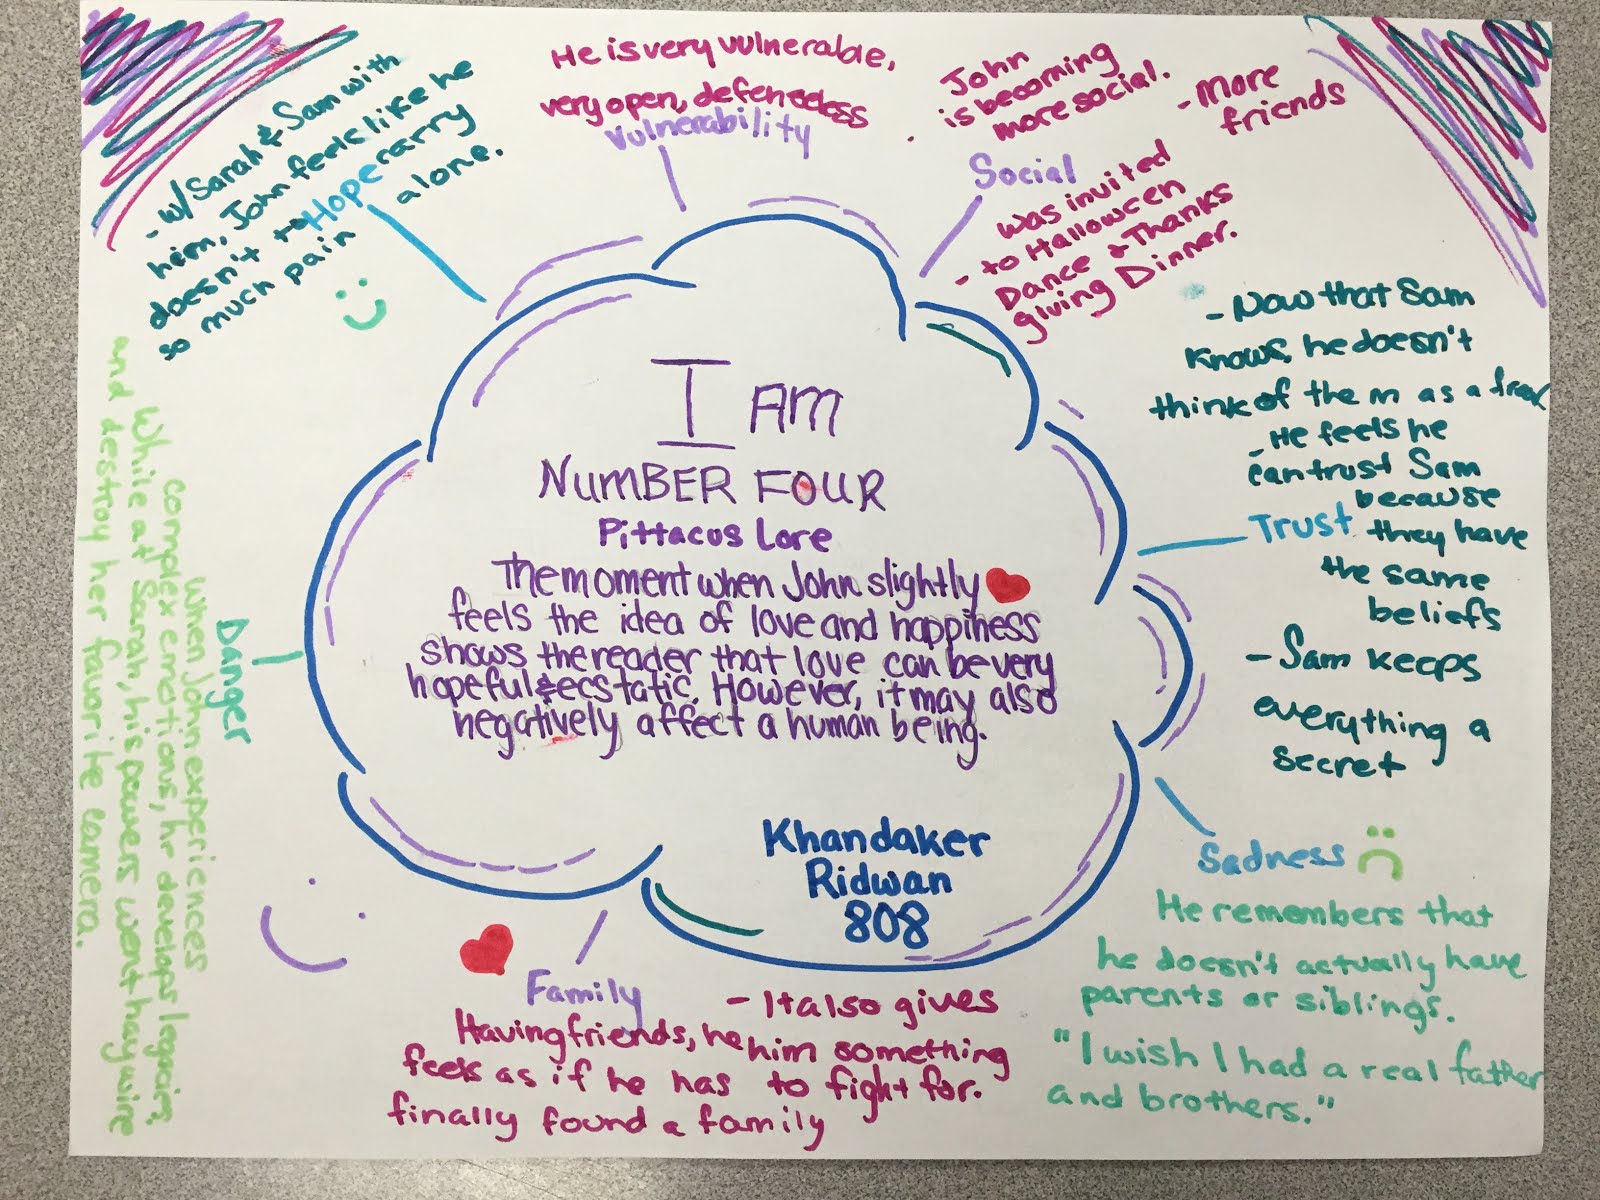 I AM
NUMBER FOUR
Pittacus Lore
The moment when John slightly
feels the idea of love and happiness
shows the reader that love can be very
hopeful & ecstatic. However, it may also
negatively affect a human being.
Khandaker
Ridwan
808
Hope
- w/ Sarah & Sam with
him, John feels like he
doesn't to carry
so much pain
alone.
He is very vulnerable,
very open, defenceless
Vulnerability
John
is becoming
more social.
- More
friends
Social
- was invited
to Halloween
Dance & Thanks
giving Dinner.
- Now that Sam
knows, he doesn't
think of them as a freak
- He feels he
can trust Sam
because
Trust
they have
the same
beliefs
- Sam keeps
everything a
secret
Sadness
He remembers that
he doesn't actually have
parents or siblings.
"I wish I had a real father
and brothers."
Family
Having friends, he
feels as if he has
finally found a family
- It also gives
him something
to fight for.
Danger
When John experiences
complex emotions, he develops legacies.
While at Sarah, his powers went haywire
and destroy her favorite camera.